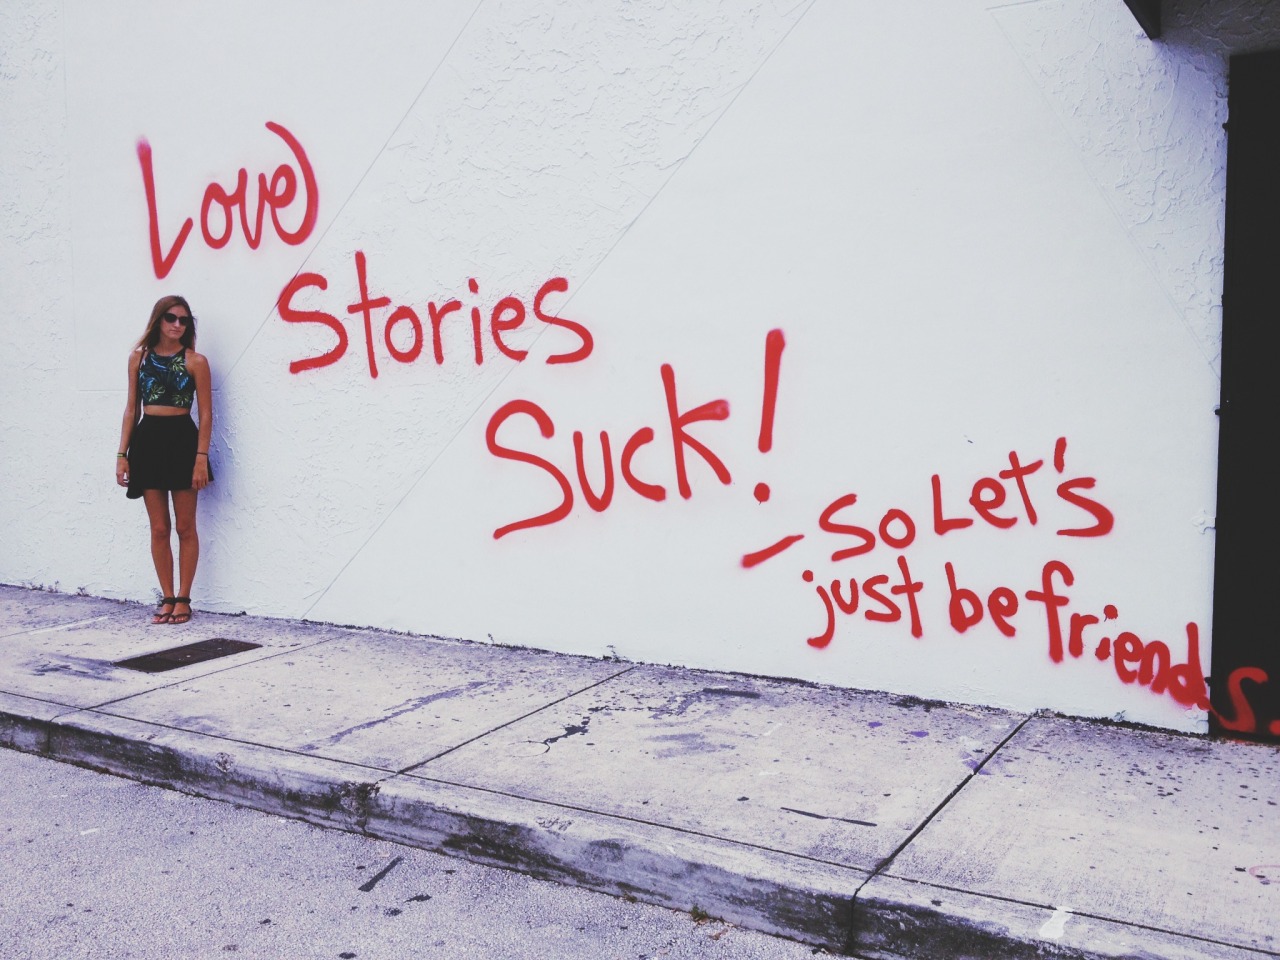 Love
Stories
Suck!
- So Let's
just be friends.